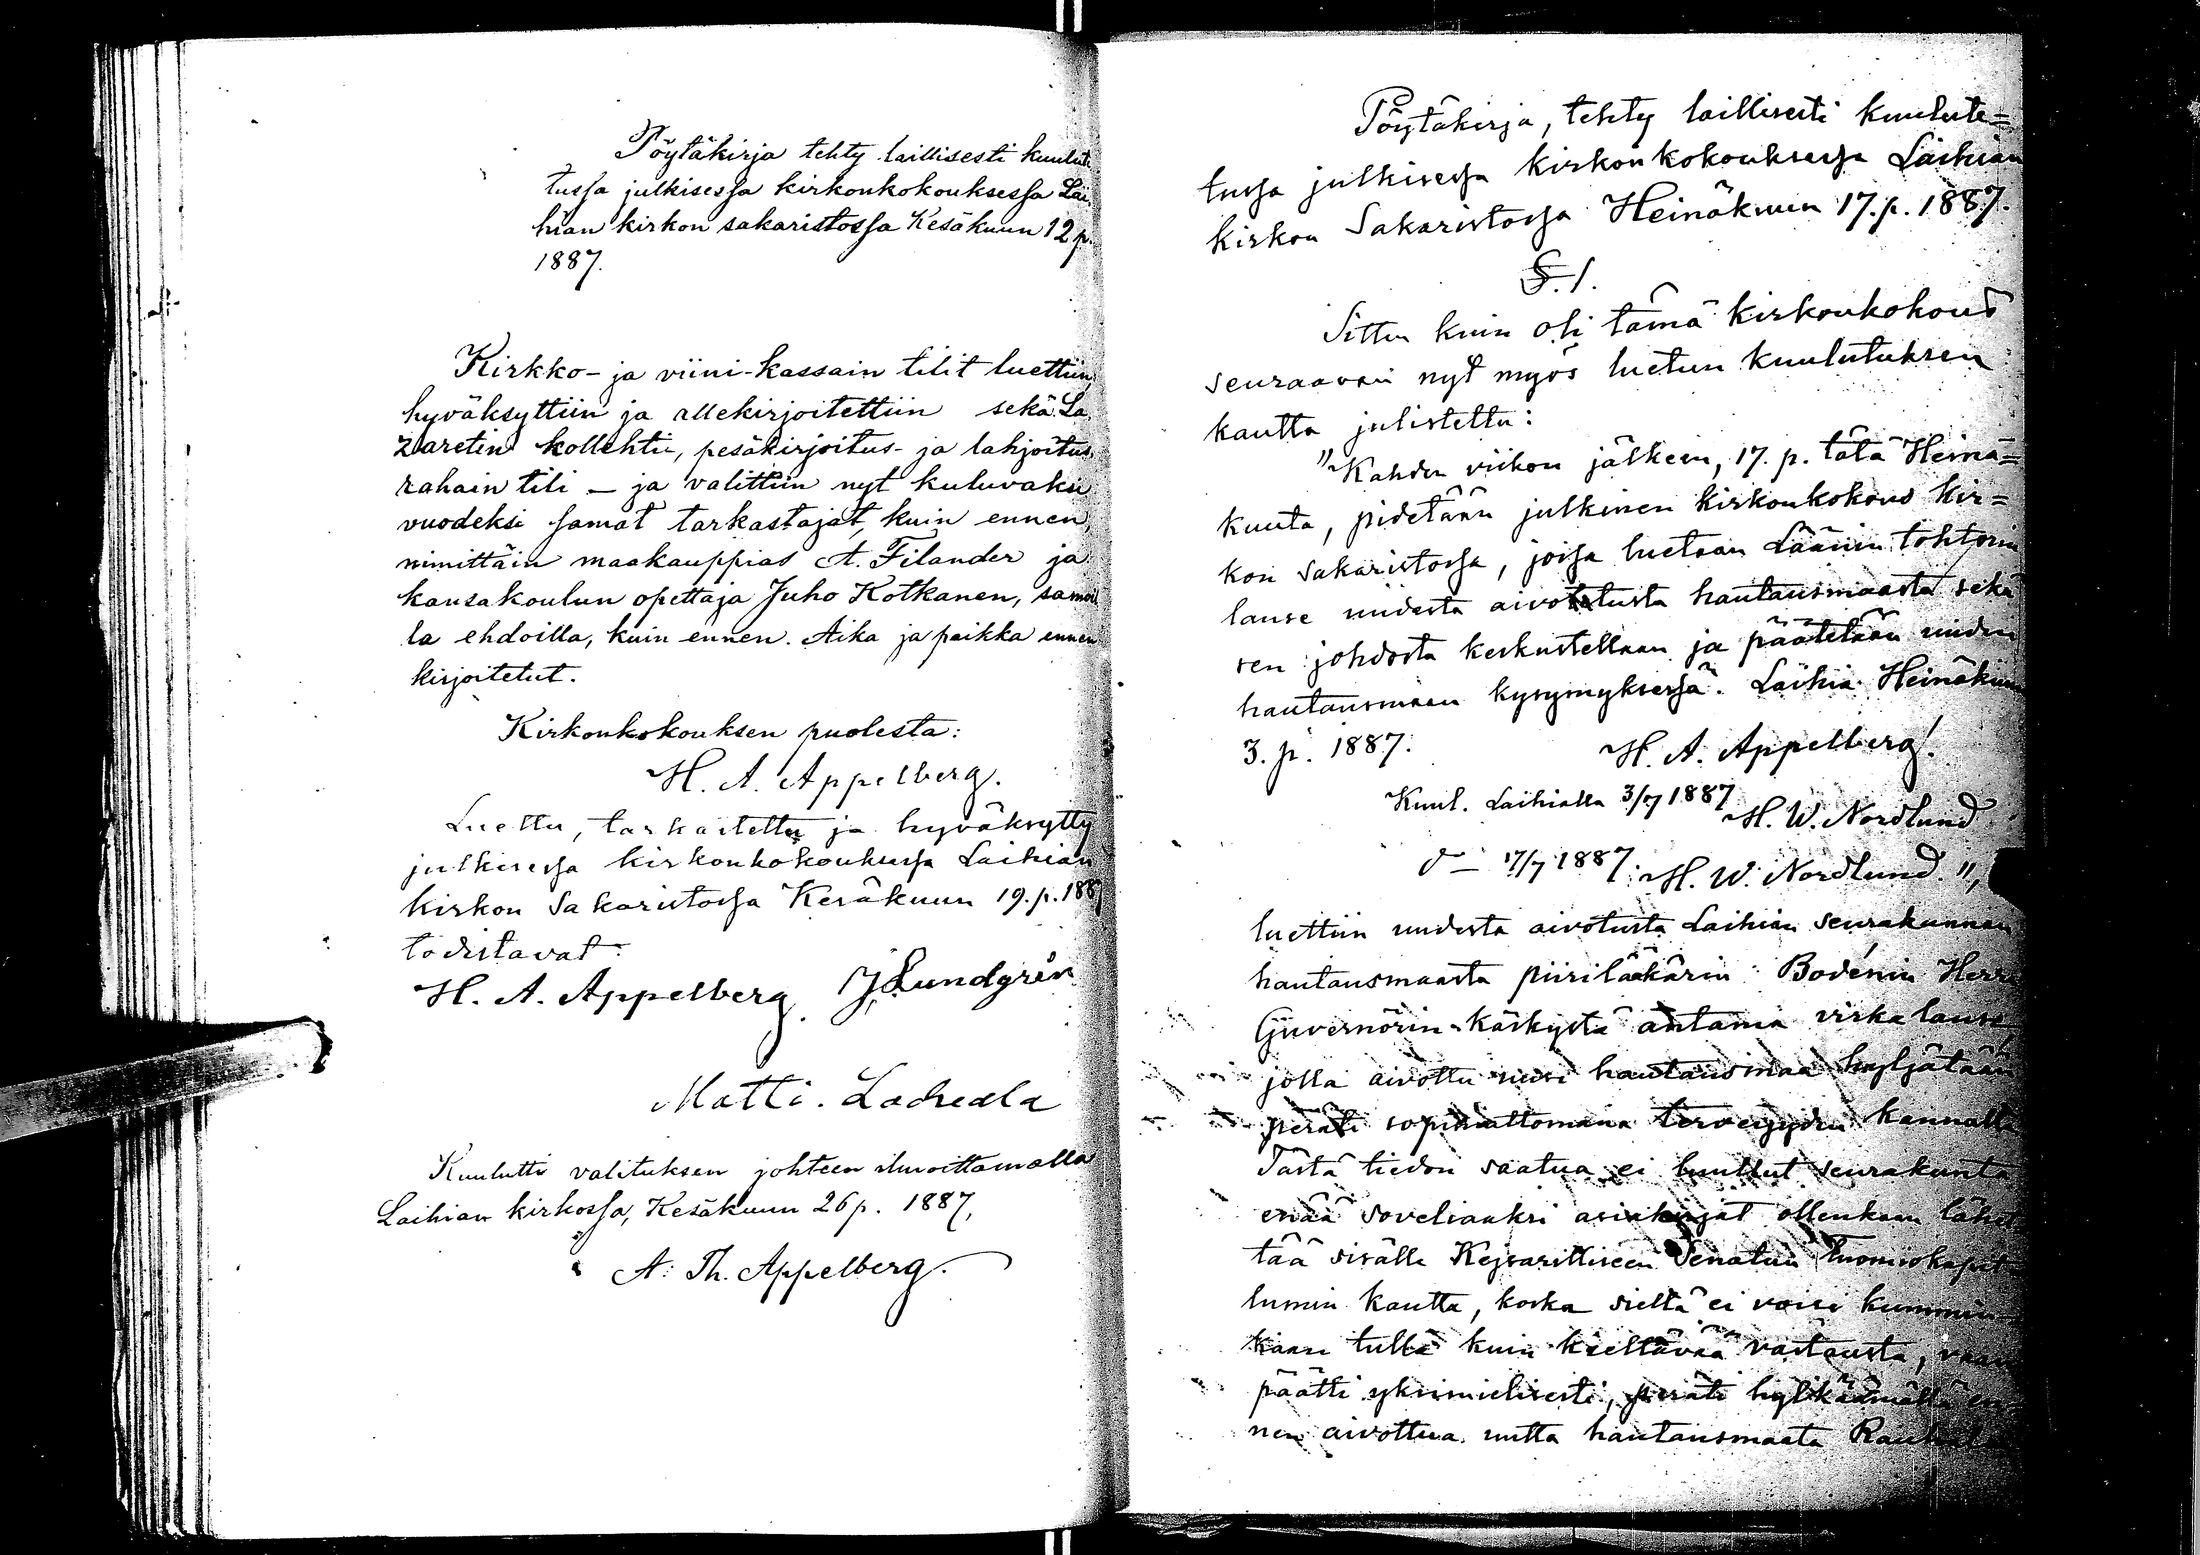 Pöytäkirja tehty laillisesti kuulute
tussa julkisessa kirkonkokouksessa Lai
hian kirkon sakaristossa Kesäkuun 12 p.
1887.
Kirkko- ja viini-kassain tilit luettiin,
hyväksyttiin ja allekirjoitettiin sekä La
zaretin kollehti-, pesäkirjoitus- ja lahjoitus
rahain tili — ja valittiin nyt kuluvaksi
vuodeksi samat tarkastajat, kuin ennen,
nimittäin maakauppias A. Filander ja
kansakoulun opettaja Juho Kotkanen, samoil
la ehdoilla, kuin ennen. Aika ja paikka ennen
kirjoitetut.
Kirkonkokouksen puolesta:
H. A. Appelberg.
Luettu, tarkastettu ja hyväksytty
julkisessa kirkonkokouksessa Laihian
kirkon Sakaristossa Kesäkuun 19. p. 1887
todistavat:
H. A. Appelberg. J. Lundgrén
Matti
Kuulutti valituksen johteen ilmoittamalla
Laihian kirkossa, Kesäkuun 26 p. 1887,
A. Th. Appelberg.
Pöytäkirja, tehty laillisesti kuulute=
tussa julkisessa kirkonkokouksessa Laihian
kirkon Sakaristossa Heinäkuun 17. p. 1887.
§. 1.
Sitten kuin oli tämä kirkonkokous
seuraavan nyt myös luetun kuulutuksen
kautta julistettu:
"Kahden viikon jälkeen, 17. p. tätä Heinä=
kuuta, pidetään julkinen kirkonkokous kir=
kon sakaristossa, jossa luetaan Läänin tohtorin
lause uudesta aivotusta hautausmaasta sekä
sen johdosta keskustellaan ja päätetään uuden
hautausmaan kysymyksessä. Laihia Heinäkuun
3. p. 1887. H. A. Appelberg.
Kuul. Laihialla 3/7 1887 H. W. Nordlund
d— 17/7 1887. H. W. Nordlund.",
luettiin uudesta aivotusta Laihian seurakunnan
hautausmaasta piirilääkärin Bodénin Herra
Guvernörin käskystä antama virka lause
jolla aivottu uusi hautausmaa hyljätään
peräti sopimattomana terveyden kannalta
Tästä tiedon saatua ei luullut seurakunta
enää soveliaaksi asiakirjat ollenkaan lähet
tää sisälle Kejsarilliseen Senatiin Tuomiokapit
lumin kautta, koska sieltä ei voisi kummin
kaan tulla kuin kieltävää vastausta, vaan
päätti yksimielisesti, peräti hylkäämällä en
nen aivottua uutta hautausmaata